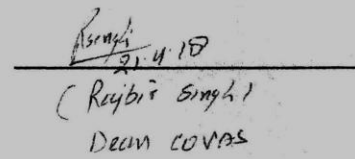 RSingh
21.4.18
(Rajbir Singh)
Dean COVAS